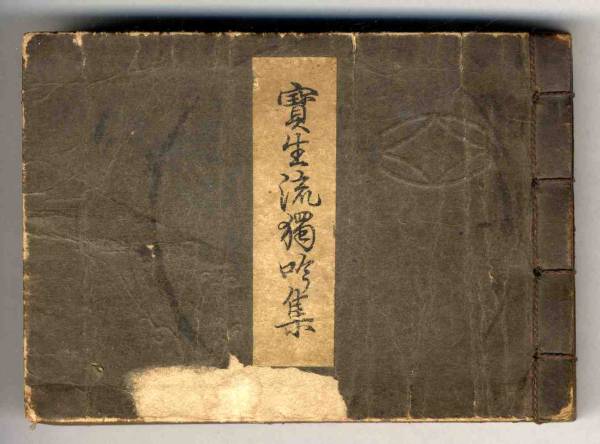 寶生流獨吟集